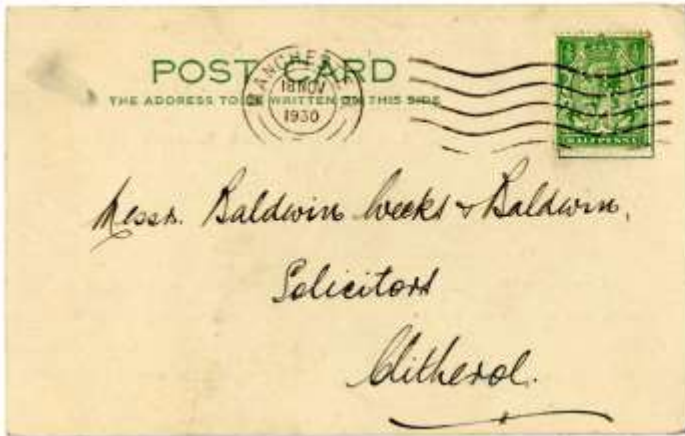 POST CARD
THE ADDRESS TO BE WRITTEN ON THIS SIDE
MANCHESTER
18 NOV
1930
HALFPENNY
Messrs. Baldwin Weeks & Baldwin,
Solicitors
Clitheroe.